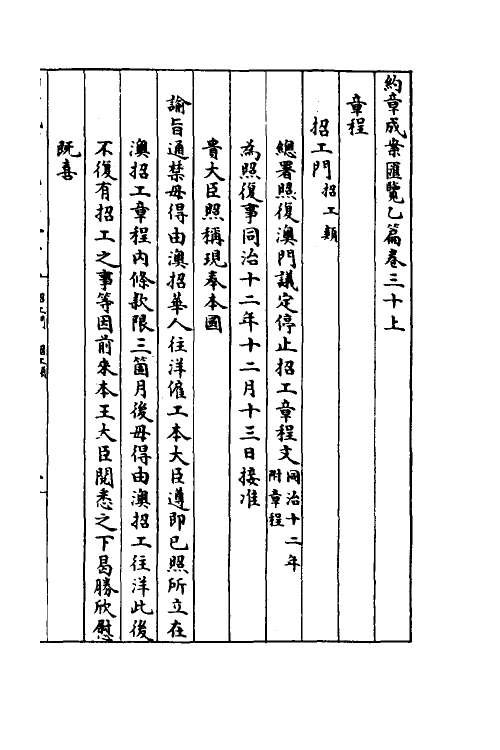 約章成案匯覽乙篇卷三十上
章程
招工門招工類
總署照復澳門議定停止招工章程文同治十二年附章程
為照復事同治十二年十二月十三日接准
貴大臣照稱現奉本國
諭旨通禁毋得由澳招華人往洋傭工本大臣遵即已照所立在
澳招工章程內條款限三箇月後毋得由澳招工往洋此後
不復有招工之事等因前來本王大臣閱悉之下曷勝欣慰
既喜